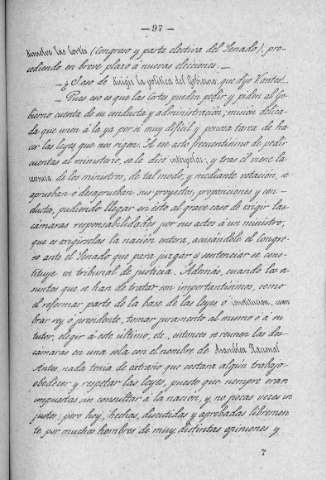 — 97 —
nombre las Cortes (Congreso y parte electiva del Senado), pro-
cediendo en breve plazo a nuevas elecciones. —
— ¿Y eso de dirigir la política del Gobierno, que dijo Vontes?
— Pues eso es que las Cortes pueden pedir y piden al Go-
bierno cuenta de su conducta y administración; misión delica-
da que unen a la ya por sí muy difícil y penosa tarea de ha-
cer las leyes que nos rigen. A un acto frecuentísimo de pedir
cuentas al ministerio, se le dice interpelar; y tras él viene la
de los ministros, de tal modo, y mediante votación, se
aprueban o desaprueban sus proyectos, proposiciones y con-
ducta, pudiendo llegar en esto al grave caso de exigir las
cámaras responsabilidades por sus actos a un ministro,
que es exigirlas la nación entera, acusándole el Congre-
so ante el Senado que para juzgar y sentenciar se cons-
tituye en tribunal de justicia. Además, cuando los a-
suntos que se han de tratar son importantísimos, como
el reformar parte de la base de las leyes o constitución, nom-
brar rey o presidente, tomar juramento al mismo o a su
tutor, elegir a este último, etc., entonces se reunen las dos
cámaras en una sola con el nombre de Asamblea Nacional
Antes nada tenía de extraño que costara algún trabajo
obedecer y respetar las leyes, puesto que siempre eran
impuestas sin consultar a la nación, y no pocas veces in-
justas; pero hoy, hechas, discutidas y aprobadas libremen-
te por muchos hombres de muy distintas opiniones y
7